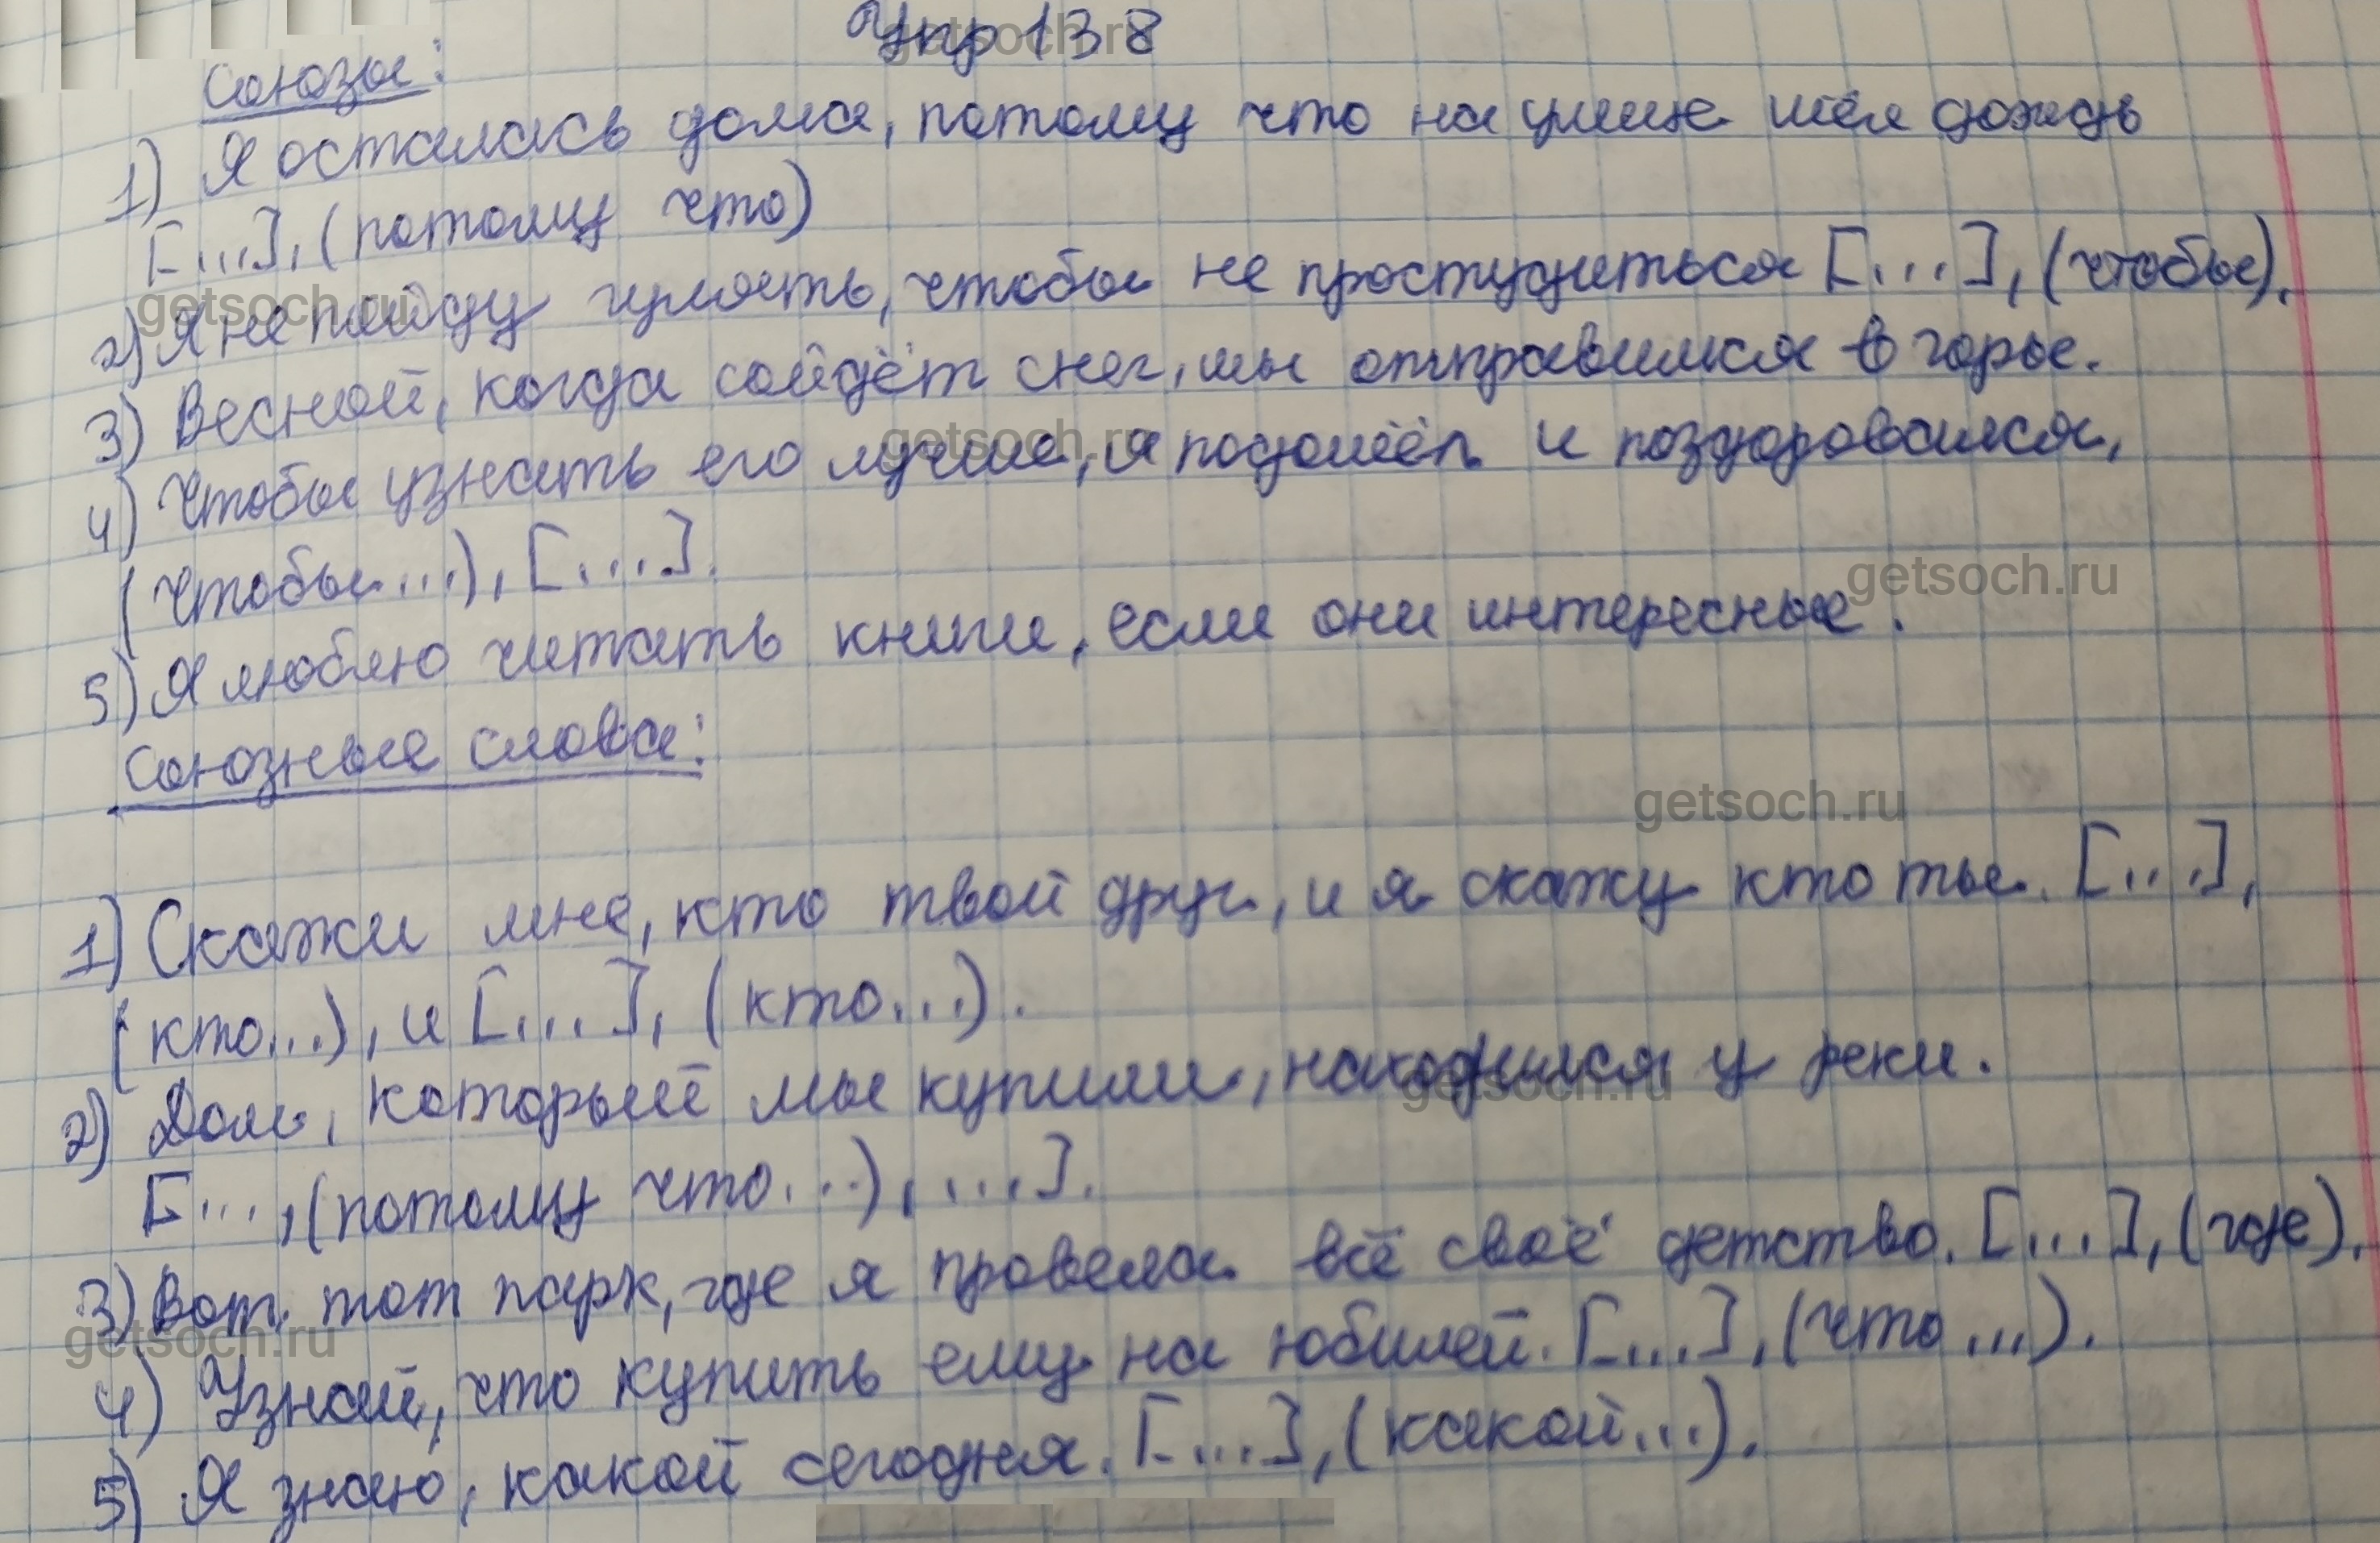 Упр 138
Союзы:
1) Я осталась дома, потому что на улице шёл дождь
[...], (потому что)
2) Я не пойду гулять, чтобы не простудиться [...], (чтобы).
3) Весной, когда сойдёт снег, мы отправимся в горы.
4) Чтобы узнать его лучше, я подошёл и поздоровался,
(чтобы...), [...].
5) Я люблю читать книги, если они интересные.
Союзные слова:
1) Скажи мне, кто твой друг, и я скажу кто ты. [...],
(кто...), и [...], (кто...).
2) Дом, который мы купили, находился у реки.
[..., (потому что...), ...].
3) Вот тот парк, где я провела всё своё детство. [...], (где).
4) Узнай, что купить ему на юбилей. [...], (что...).
5) Я знаю, какой сегодня. [...], (какой...).
getsoch.ru
getsoch.ru
getsoch.ru
getsoch.ru
getsoch.ru
getsoch.ru
getsoch.ru